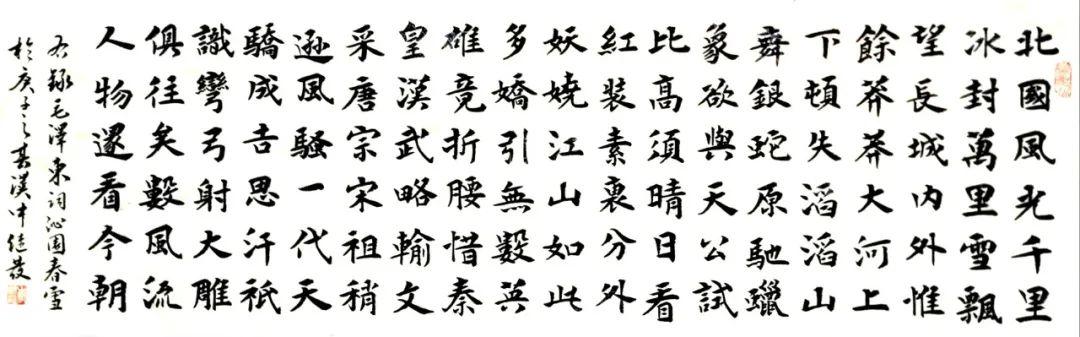 北國風光千里
冰封萬里雪飄
望長城內外惟
餘莽莽大河上
下頓失滔滔山
舞銀蛇原馳蠟
象欲與天公試
比高須晴日看
紅裝素裹分外
妖嬈江山如此
多嬌引無數英
雄竟折腰惜秦
皇漢武略輸文
采唐宗宋祖稍
遜風騷一代天
驕成吉思汗祇
識彎弓射大雕
俱往矣數風流
人物還看今朝
右錄毛澤東詞沁園春雪
於庚子之春漢中